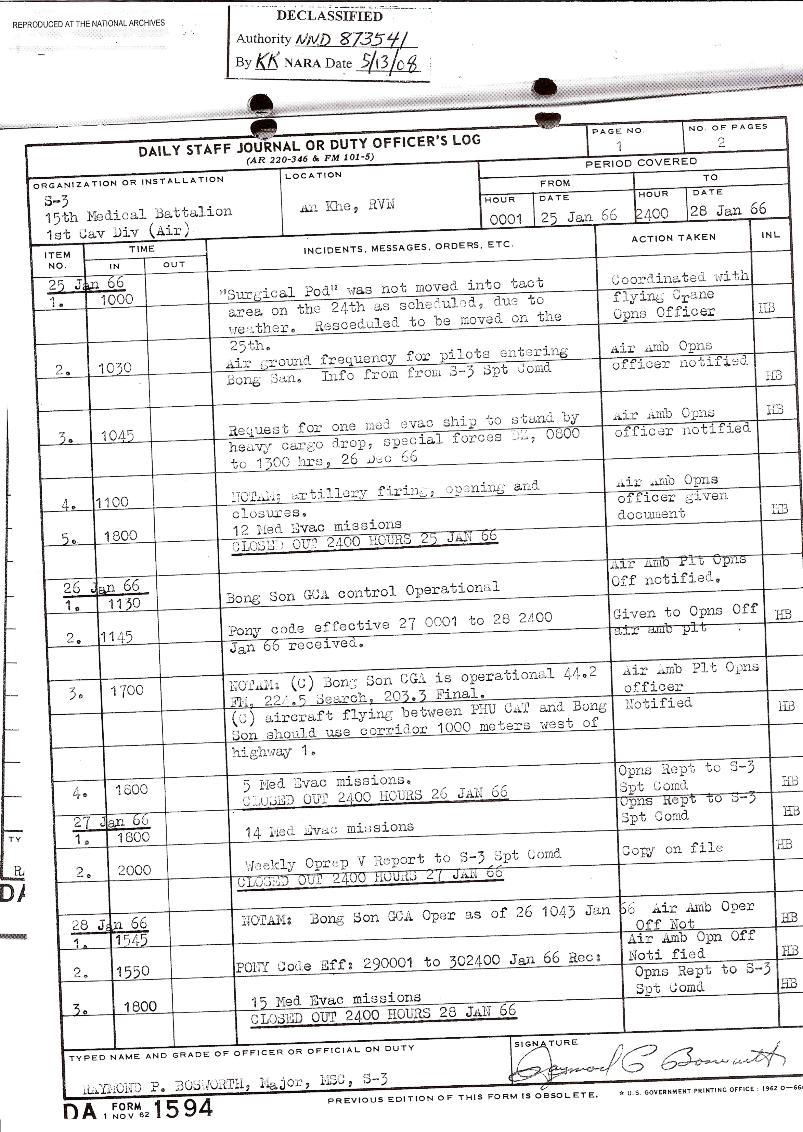 REPRODUCED AT THE NATIONAL ARCHIVES
DECLASSIFIED
Authority NND 873541
By KK NARA Date 5/13/08
DAILY STAFF JOURNAL OR DUTY OFFICER'S LOG
(AR 220-346 & FM 101-5)
PAGE NO.
1
NO. OF PAGES
2
ORGANIZATION OR INSTALLATION
S-3
15th Medical Battalion
1st Cav Div (Air)
LOCATION
An Khe, RVN
PERIOD COVERED
FROM
TO
HOUR
DATE
HOUR
DATE
0001
25 Jan 66
2400
28 Jan 66
ITEM NO.
TIME
IN
OUT
INCIDENTS, MESSAGES, ORDERS, ETC.
ACTION TAKEN
INL
25 Jan 66
1. 1000 "Surgical Pod" was not moved into tact Coordinated with
area on the 24th as scheduled, due to flying Crane
weather. Resceduled to be moved on the Opns Officer HB
25th.
2. 1030 Air ground frequency for pilots entering Air Amb Opns
Bong San. Info from from S-3 Spt Comd officer notified HB
3. 1045 Request for one med evac ship to stand by Air Amb Opns HB
heavy cargo drop, special forces DZ, 0800 officer notified
to 1300 hrs, 26 Dec 66
4. 1100 NOTAM; artillery firing, opening and Air Amb Opns
closures. officer given
document HB
5. 1800 12 Med Evac missions
CLOSED OUT 2400 HOURS 25 JAN 66
26 Jan 66
1. 1130 Bong Son GCA control Operational Air Amb Plt Opns
Off notified.
2. 1145 Pony code effective 27 0001 to 28 2400 Given to Opns Off HB
Jan 66 received. air amb plt
3. 1700 NOTAM: (C) Bong Son CGA is operational 44.2 Air Amb Plt Opns
FM, Search, 203.3 Final. officer
(C) aircraft flying between PHU CAT and Bong Notified HB
Son should use corridor 1000 meters west of
highway 1.
4. 1800 5 Med Evac missions. Opns Rept to S-3
CLOSED OUT 2400 HOURS 26 JAN 66 Spt Comd HB
27 Jan 66
1. 1800 14 Med Evac missions Opns Rept to S-3
Spt Comd HB
2. 2000 Weekly Oprep V Report to S-3 Spt Comd Copy on file HB
CLOSED OUT 2400 HOURS 27 JAN 66
28 Jan 66
1. 1545 NOTAM: Bong Son GCA Oper as of 26 1043 Jan 66 Air Amb Oper
Off Not HB
2. 1550 PONY Code Eff: 290001 to 302400 Jan 66 Rec: Air Amb Opn Off
Noti fied HB
3. 1800 15 Med Evac missions Opns Rept to S-3
Spt Comd HB
CLOSED OUT 2400 HOURS 28 JAN 66
TYPED NAME AND GRADE OF OFFICER OR OFFICIAL ON DUTY
RAYMOND P. BOSWORTH, Major, MSC, S-3
SIGNATURE
Raymond P Bosworth
DA FORM 1594
1 NOV 62
PREVIOUS EDITION OF THIS FORM IS OBSOLETE.
★ U.S. GOVERNMENT PRINTING OFFICE : 1962 O—66
TY
R
DA